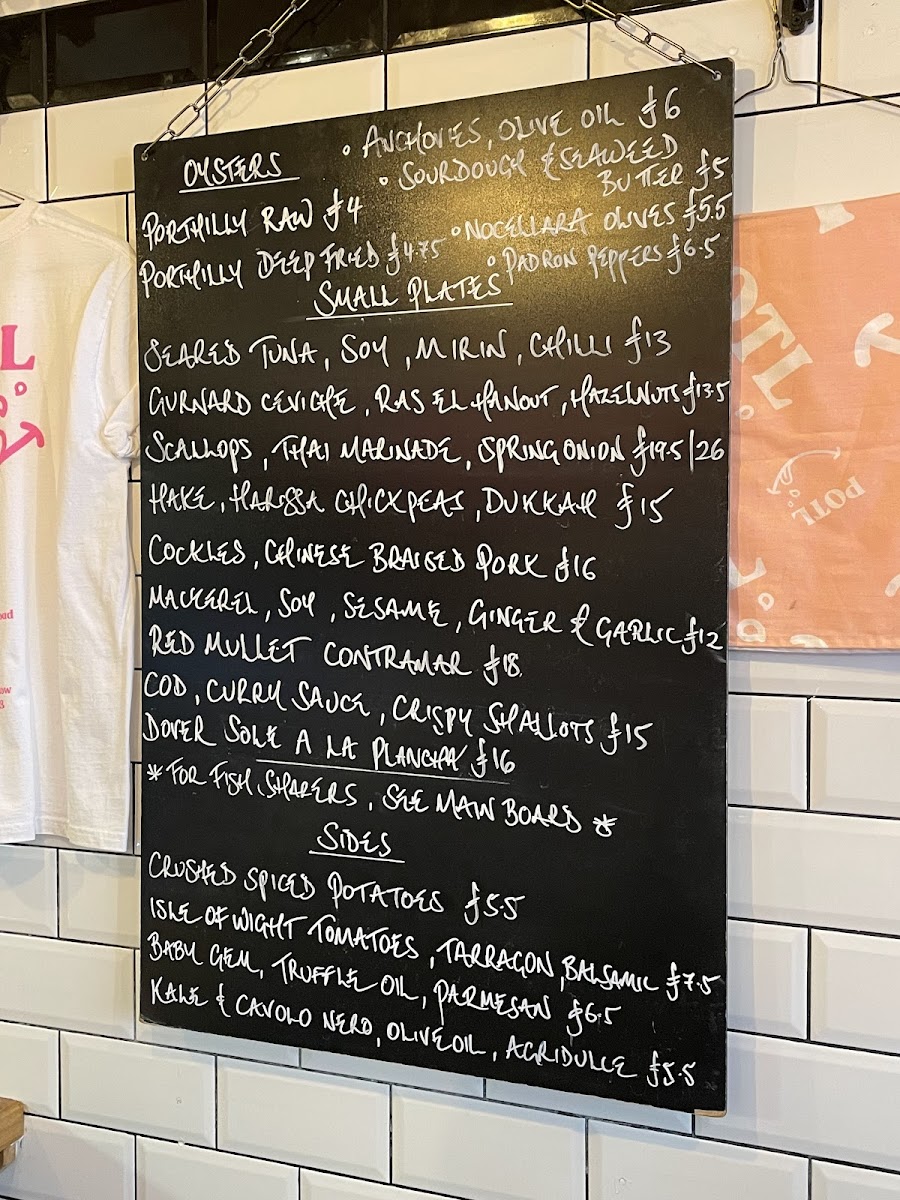 OYSTERS
PORTHILLY RAW £4
PORTHILLY DEEP FRIED £4.75
• ANCHOVIES, OLIVE OIL £6
• SOURDOUGH & SEAWEED
BUTTER £5
• NOCELLARA OLIVES £5.5
• PADRON PEPPERS £6.5
SMALL PLATES
SEARED TUNA, SOY, MIRIN, CHILLI £13
GURNARD CEVICHE, RAS EL HANOUT, HAZELNUTS £13.5
SCALLOPS, THAI MARINADE, SPRING ONION £19.5/26
HAKE, HARISSA CHICKPEAS, DUKKAH £15
COCKLES, CHINESE BRAISED PORK £16
MACKEREL, SOY, SESAME, GINGER & GARLIC £12
RED MULLET CONTRAMAR £18
COD, CURRY SAUCE, CRISPY SHALLOTS £15
DOVER SOLE A LA PLANCHA £16
* FOR FISH SHARERS, SEE MAIN BOARD *
SIDES
CRUSHED SPICED POTATOES £5.5
ISLE OF WIGHT TOMATOES, TARRAGON, BALSAMIC £7.5
BABY GEM, TRUFFLE OIL, PARMESAN £6.5
KALE & CAVOLO NERO, OLIVE OIL, AGRIDULCE £5.5
POTL